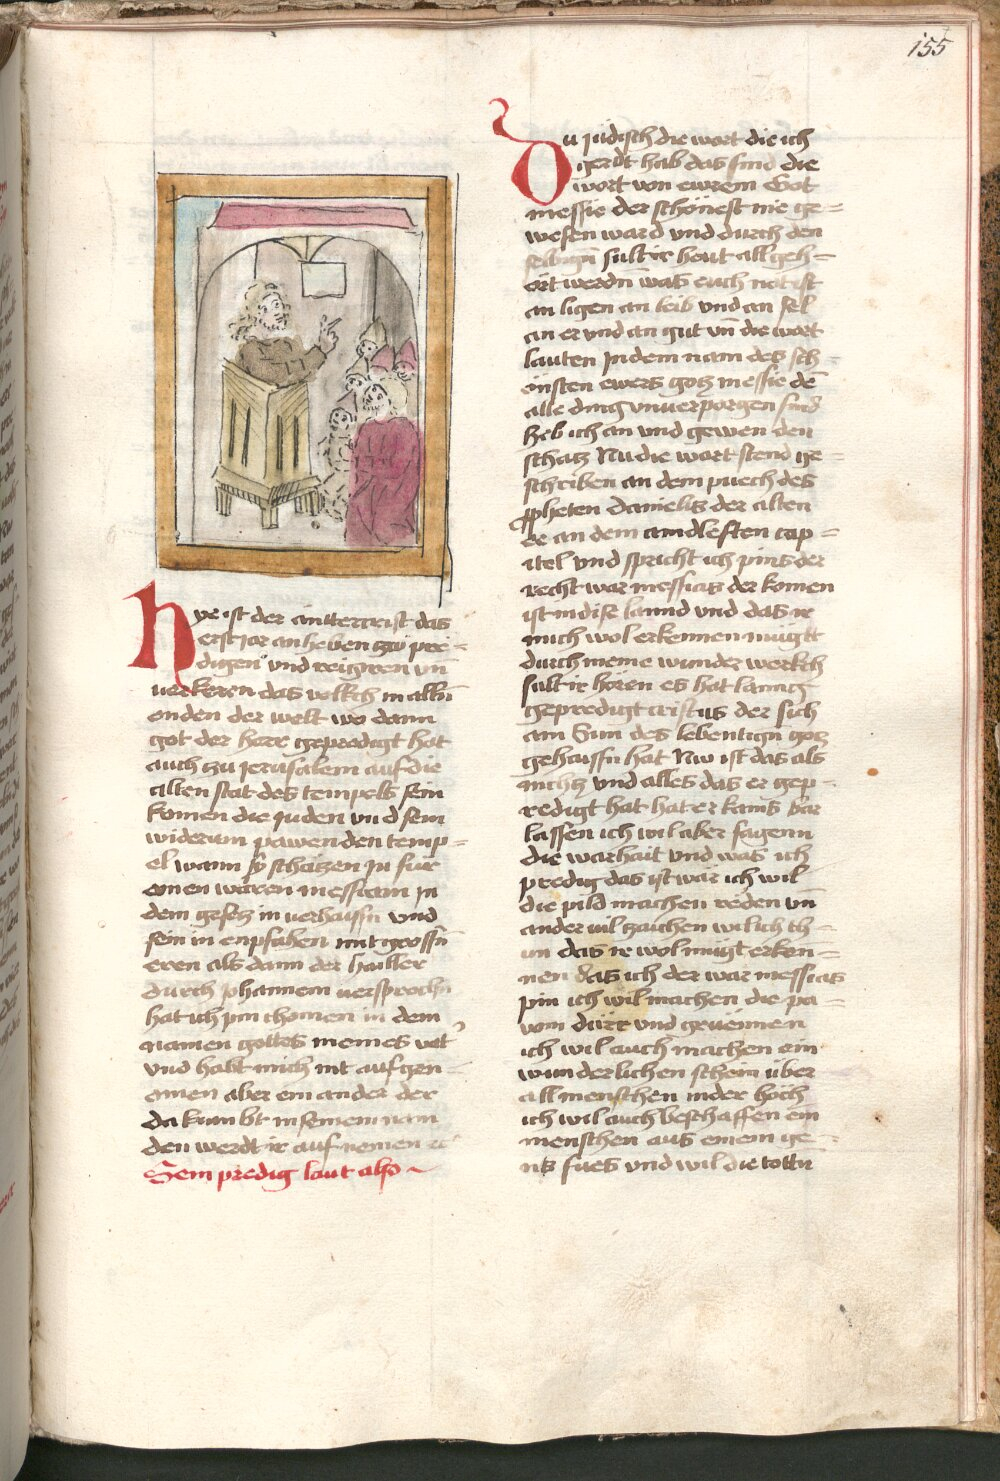 155
hye ist der anttercrist das
erst jar an heben zw pre=
digen und reigiren vn̄
verkeren das volkch in alln̄
enden der welt wo dann
got der herr gepredigt hat
auch zu jerusalem auf die
alten stat des tempels sein
komen die juden vnd sein
widerum pawen den temp=
el wann sy scheczen jn für
einen waren messiam jn
dem gesecz in verhaissn̄ vnd
sein in enpfahen mit grossn̄
eren als dann der hailler
durch johannem versprochn̄
hat ich pin chomen in dem
namen gottes meines vat
vnd habt mich nit aufgen=
omen aber ein ander der
da kumbt in seinem nam
den werdt ir auf nemen
Sein predig laut also
Du jüdisch die wort die ich
geredt hab das sind die
wort von ewrem Got
messie der schönest nie ge=
wesen ward vnd durch den
selbign̄ sult ir heut all geh=
ört werdn̄ was euch not ist
an ligen an leib vnd an sel
an er vnd an gut vn̄ die wort
lauten jn dem nam des sch=
önsten ewers gotz messie dē
alle ding vnuerporgen sind
heb ich an vnd gewen den
schatz Nu die wort stend ge=
schriben an dem puech des
ꝓpheten Danielis der alten
ee an dem aindleften cap=
itel vnd spricht ich pins der
recht war messias der komen
ist in dise lannd vnd das ir
mich wol erkennen mügtt
durch meine wunder werkch
sult ir hören es hat lanng
gepredigt cristus der sich
am Sun des lebentign̄ gotz
gehaissn̄ hat Nw ist das als
nichtz vnd alles das er gep=
redigt hat hat er kains war
lassen ich wil aber sagenn
die warhait vnd was ich
predig das ist war ich wil
die pild machen reden vn̄
ander vil zaichen wil ich th=
un das ir wol mügt erken=
nen das ich der war messias
pin ich wil machen die pa=
wm dürr vnd grüennen
ich wil auch machen ein
wunderlichen schein über
all menschen in der höch
ich wil auch beschaffen ein
menschen aus einem ge=
nls fues vnd wil die tottn̄